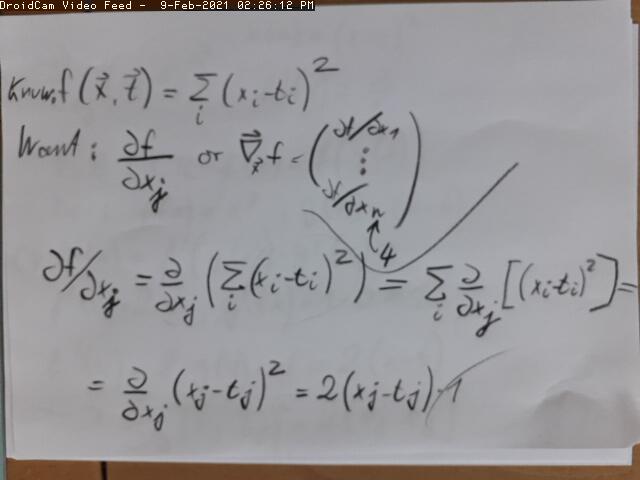 DroidCam Video Feed - 9-Feb-2021 02:26:12 PM
Know: f(x⃗, t⃗) = Σ_i (x_i - t_i)^2
Want: ∂f/∂x_j or ∇⃗_x⃗ f = (∂f/∂x_1 ⋮ ∂f/∂x_n)
4
∂f/∂x_j = ∂/∂x_j (Σ_i (x_i - t_i)^2) = Σ_i ∂/∂x_j [(x_i - t_i)^2] =
= ∂/∂x_j (x_j - t_j)^2 = 2(x_j - t_j)·1